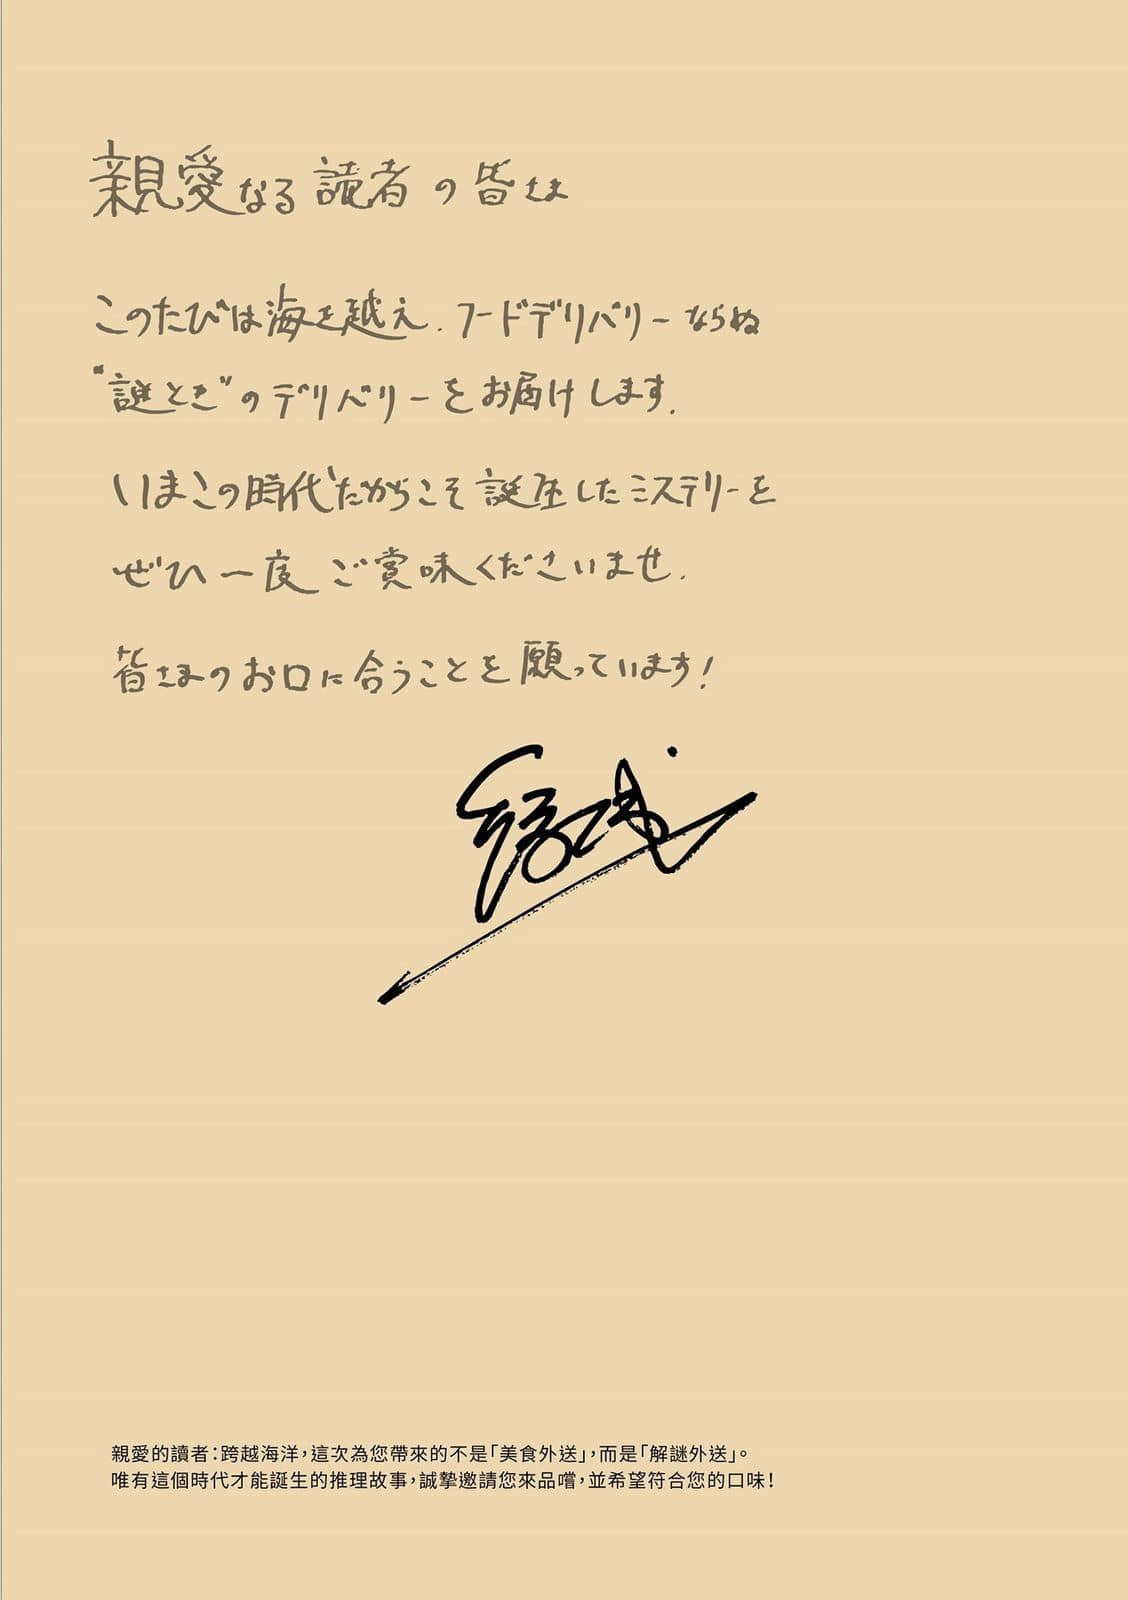 親愛なる読者の皆さま
このたびは海を越え、フードデリバリーならぬ
“謎とき”のデリバリーをお届けします。
いまこの時代だからこそ誕生したミステリーを
ぜひ一度ご賞味くださいませ。
皆さまのお口に合うことを願っています!
親愛的讀者：跨越海洋，這次為您帶來的不是「美食外送」，而是「解謎外送」。
唯有這個時代才能誕生的推理故事，誠摯邀請您來品嚐，並希望符合您的口味！